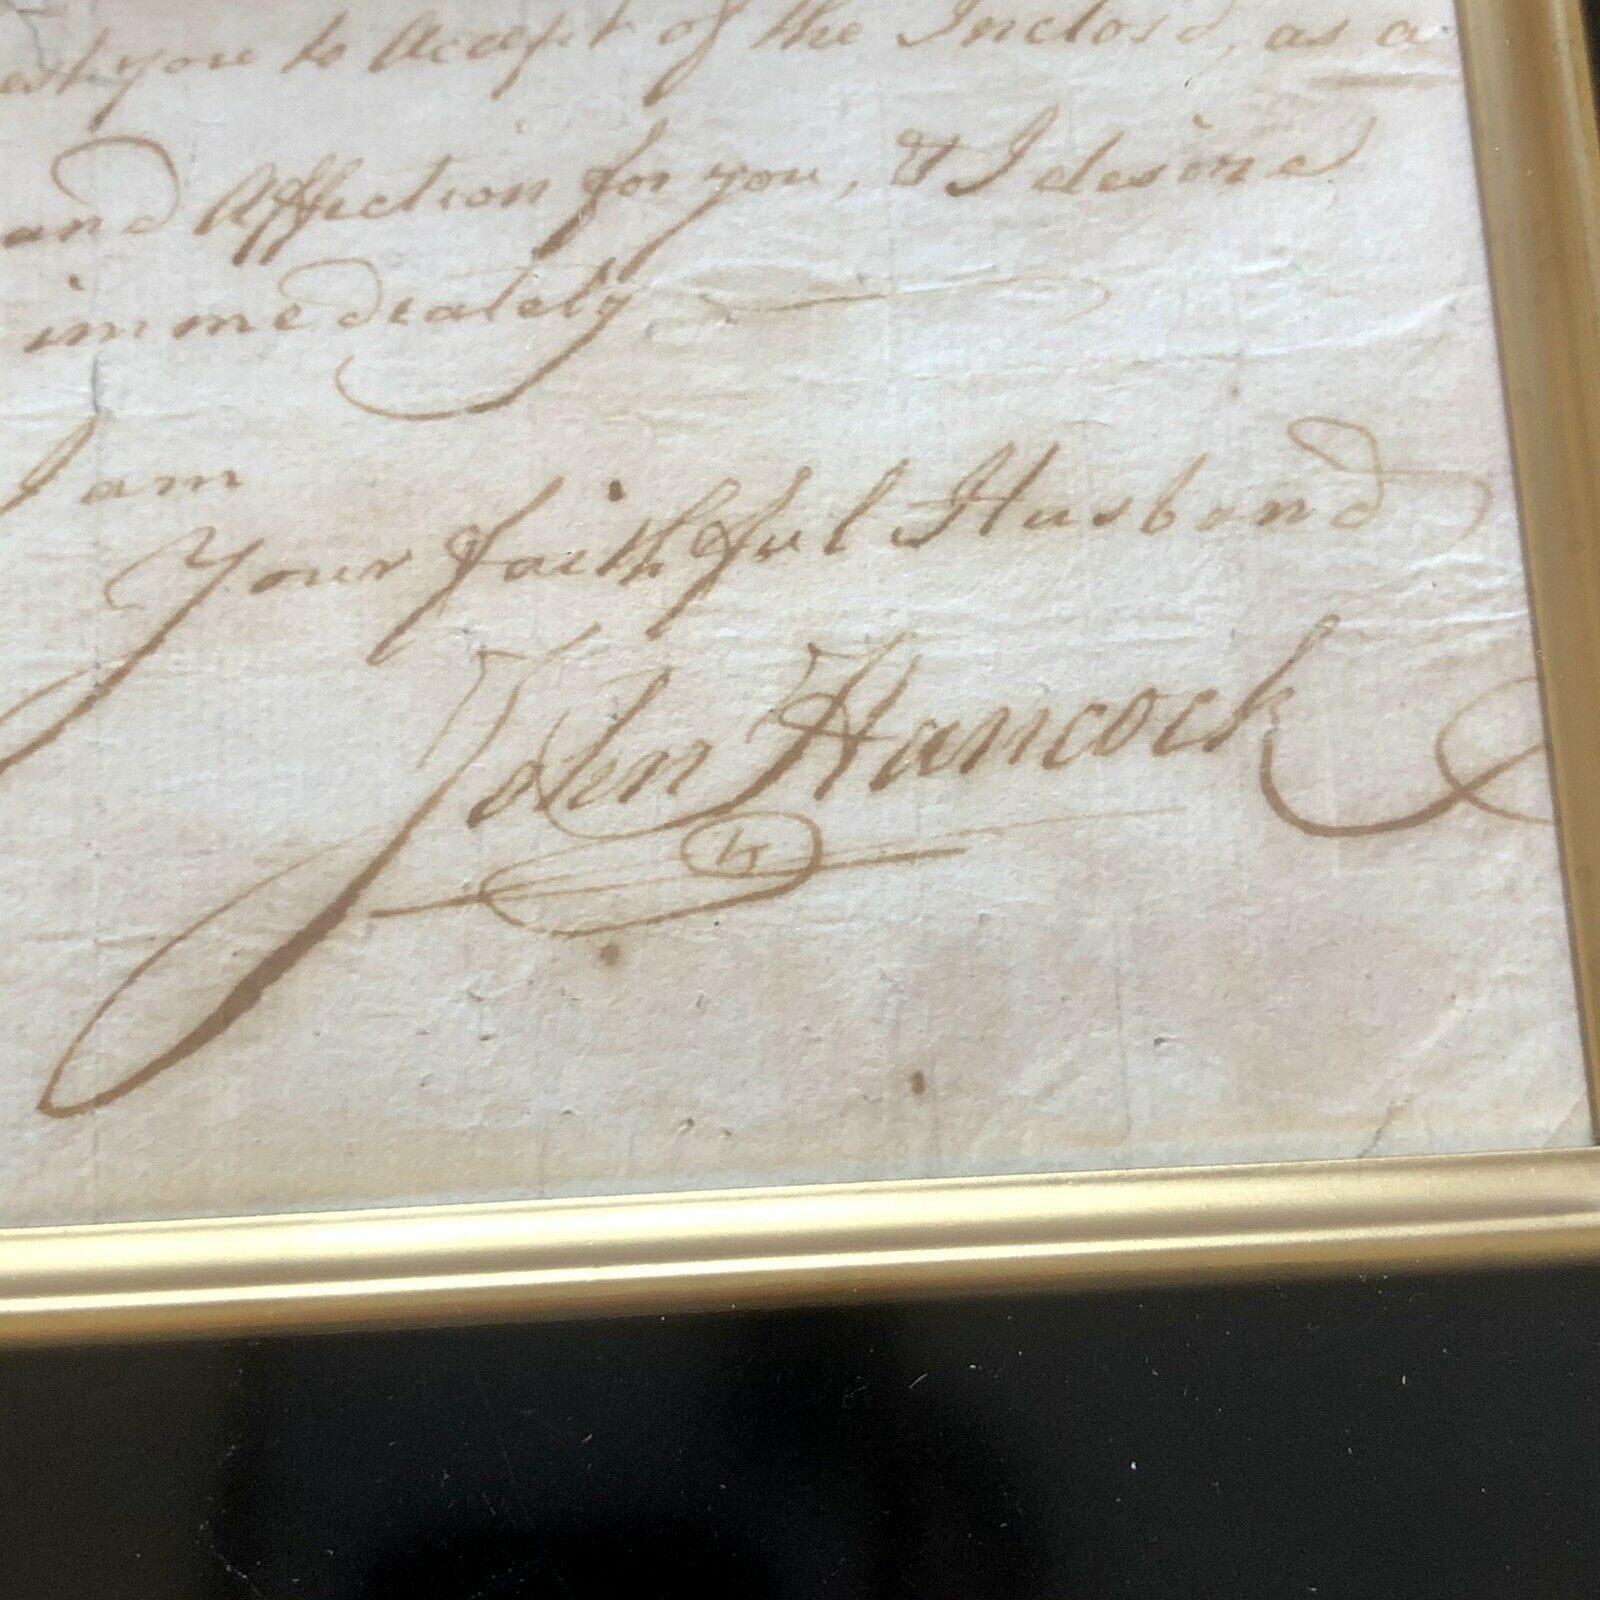 you to Accept of the Inclos'd, as a
and Affection for you, & I desire
immediately
I am
Your faithful Husband
John Hancock